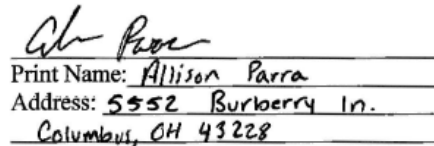 Print Name: Allison Parra
Address: 5552 Burberry ln.
Columbus, OH 43228